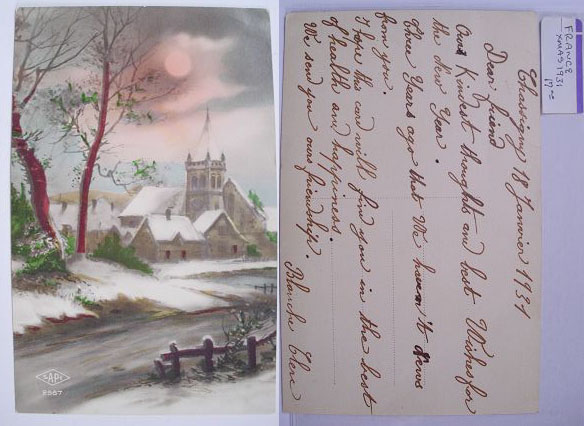 SAPI
2567
Chassigny 18 Janvier 1931
Dear friend
Our Kindest thoughts and best Wishes for
the New Year.
Three Years ago that We haven't news
from you.
I hope this card will find you in the best
of health and happiness.
We send you ours friendship.
Blanche
FRANCE
XMAS 1931